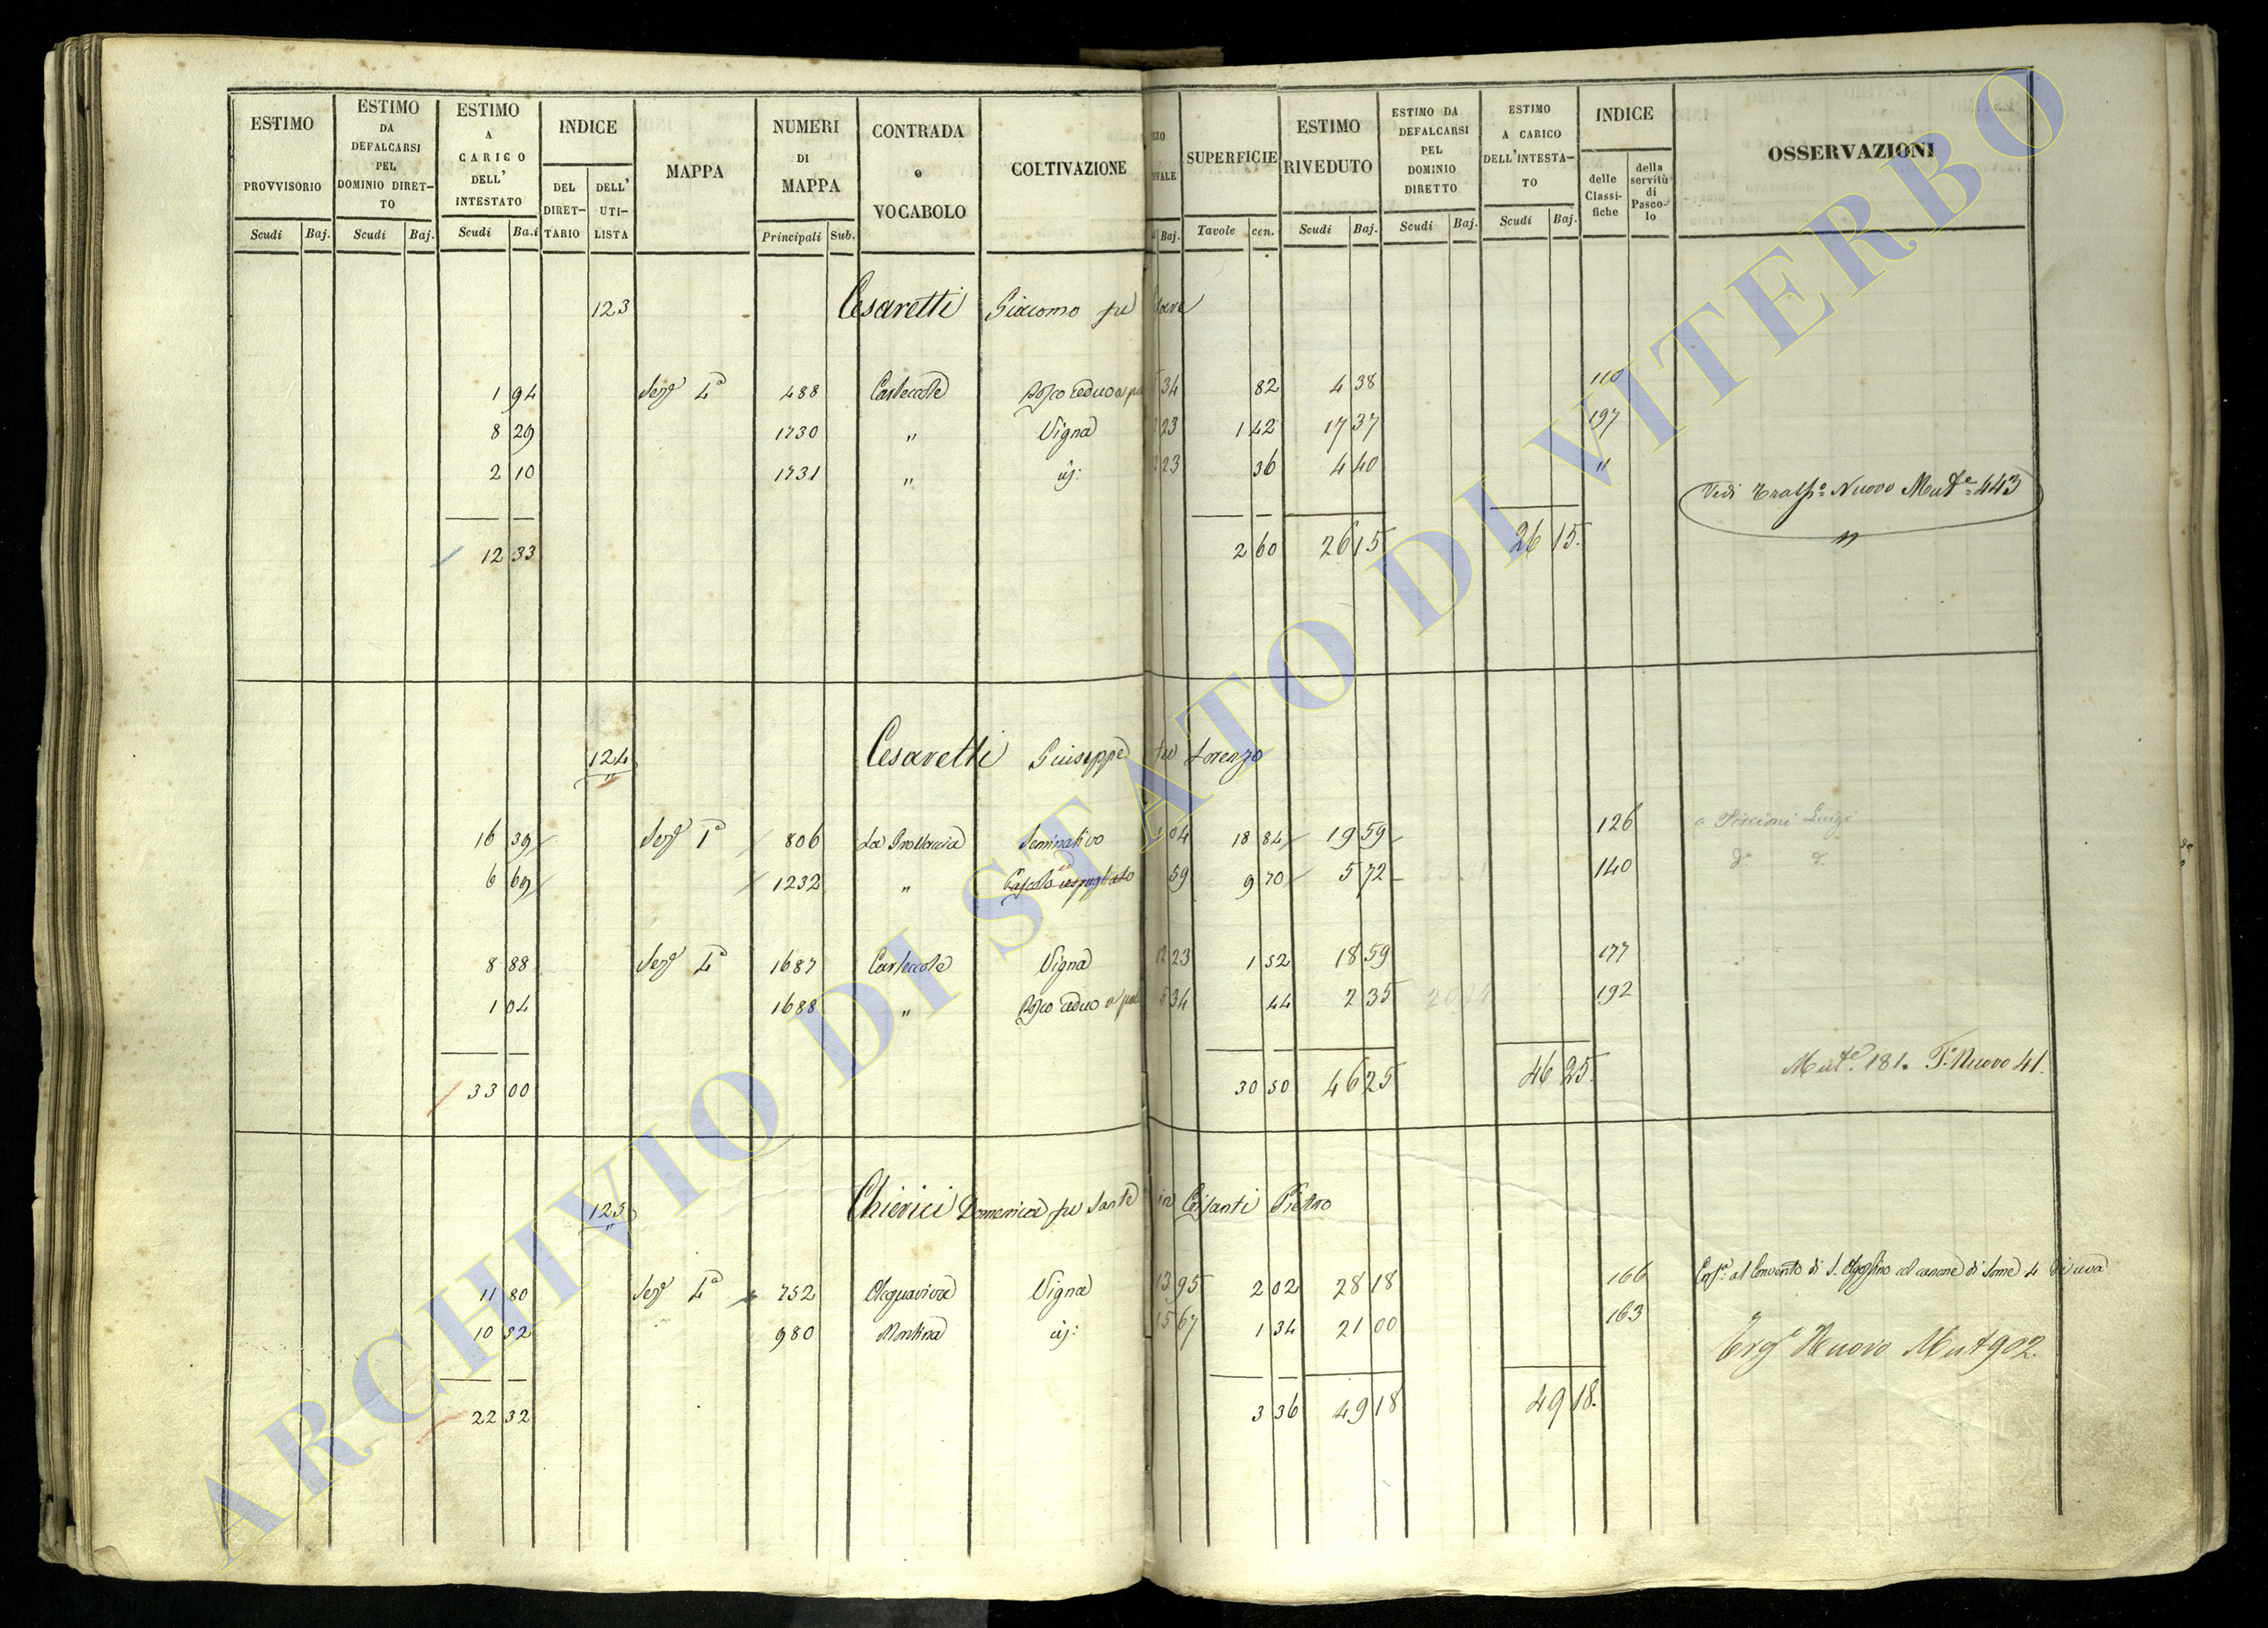 ESTIMO PROVVISORIO Scudi Baj.
ESTIMO DA DEFALCARSI PEL DOMINIO DIRET- TO Scudi Baj.
ESTIMO A CARICO DELL' INTESTATO Scudi Ba.i
INDICE DEL DIRET- TARIO DELL' UTI- LISTA
MAPPA
NUMERI DI MAPPA Principali Sub.
CONTRADA o VOCABOLO
COLTIVAZIONE
Baj.
SUPERFICIE Tavole cen.
ESTIMO RIVEDUTO Scudi Baj.
ESTIMO DA DEFALCARSI PEL DOMINIO DIRETTO Scudi Baj.
ESTIMO A CARICO DELL'INTESTA- TO Scudi Baj.
INDICE delle Classi- fiche della servitù di Pasco- lo
OSSERVAZIONI
123 Cesaretti Giacomo fu
1 94 Sez.e 4a 488 Carleccole Bosco ceduo a 34 82 4 38 110
8 29 1730 " Vigna 23 1 42 17 37 197
2 10 1731 " 23 36 4 40 "
Vedi Nuovo Mut.e 443
12 33 2 60 26 15 26 15.
124 Cesaretti Giuseppe fu Lorenzo
16 39 Sez.e 1a 806 Seminativo 1 04 18 84 19 59 126 a Piccioni Luigi
6 69 1232 " Pascolo cespugliato 59 9 70 5 72 140 d.o d.o
8 88 Sez.e 4a 1687 Carleccole Vigna 12 23 1 52 18 59 177
1 04 1688 " Bosco ceduo a 5 34 44 2 35 192
33 00 30 50 46 25 46 25. Mut.e 181. T.o Nuovo 41.
125 Chierici Domenica fu Sante in Cesanti Pietro
11 80 Sez.e 4a 752 Acquaviva Vigna 13 95 2 02 28 18 166 al Convento di S. Agostino col canone di Some 4 di uva
10 52 980 Montina 15 67 1 34 21 00 163
Nuovo Mut 902.
22 32 3 36 49 18 49 18.
ARCHIVIO DI STATO DI VITERBO